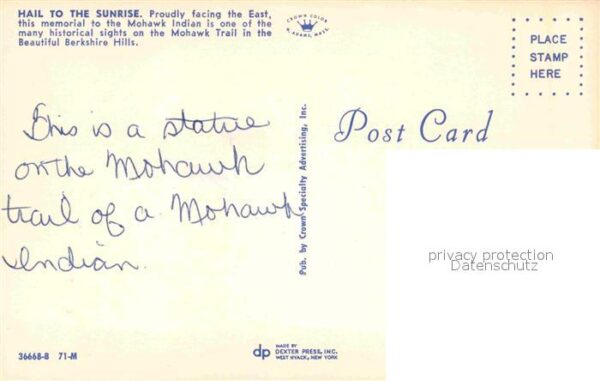 HAIL TO THE SUNRISE. Proudly facing the East,
this memorial to the Mohawk Indian is one of the
many historical sights on the Mohawk Trail in the
Beautiful Berkshire Hills.
CROWN COLOR
N. ADAMS, MASS.
PLACE
STAMP
HERE
This is a statue
on the Mohawk
trail of a Mohawk
Indian.
Pub. by Crown Specialty Advertising, Inc.
Post Card
privacy protection
Datenschutz
36668-B 71-M
dp
MADE BY
DEXTER PRESS, INC.
WEST NYACK, NEW YORK